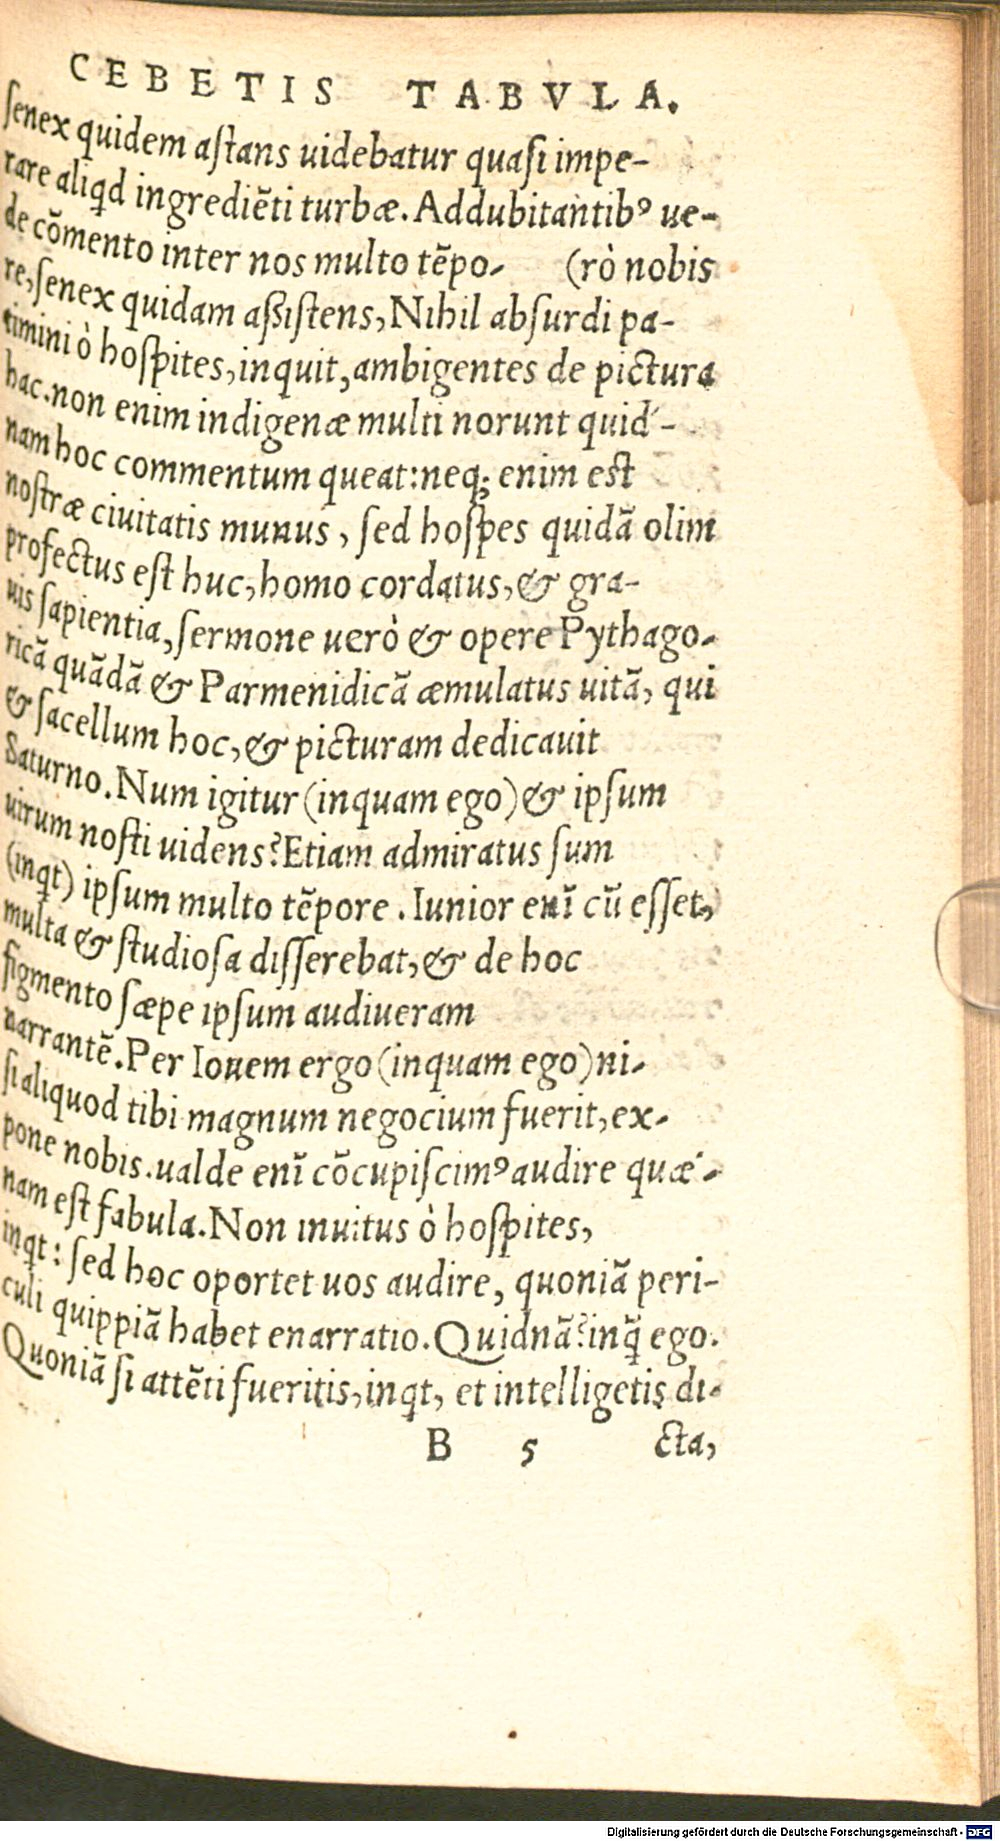 CEBETIS TABVLA.
ſenex quidem aſtans uidebatur quaſi impe-
rare aliqd ingrediẽti turbæ. Addubitantibꝰ ue-
de cõmento inter nos multo tẽpo- (rò nobis
re, ſenex quidam aßiſtens, Nihil abſurdi pa-
timini ò hoſpites, inquit, ambigentes de pictura
hac. non enim indigenæ multi norunt quid-
nam hoc commentum queat: neq; enim eſt
noſtræ ciuitatis munus, ſed hoſpes quidã olim
profectus eſt huc, homo cordatus, & gra-
uis ſapientia, ſermone uerò & opere Pythago-
ricã quãdã & Parmenidicã æmulatus uitã, qui
& ſacellum hoc, & picturam dedicauit
Saturno. Num igitur (inquam ego) & ipſum
uirum noſti uidens? Etiam admiratus ſum
(inqt) ipſum multo tẽpore. Iunior enĩ cũ eſſet,
multa & ſtudioſa diſſerebat, & de hoc
figmento ſæpe ipſum audiueram
narrantẽ. Per Iouem ergo (inquam ego) ni-
ſi aliquod tibi magnum negocium fuerit, ex-
pone nobis. ualde enĩ cõcupiſcimꝰ audire quæ-
nam eſt fabula. Non inuitus ò hoſpites,
inqt: ſed hoc oportet uos audire, quoniã peri-
culi quippiã habet enarratio. Quidnã? inq̃ ego.
Quoniã ſi attẽti fueritis, inqt, et intelligetis di-
B 5 cta,
Digitalisierung gefördert durch die Deutsche Forschungsgemeinschaft - DFG